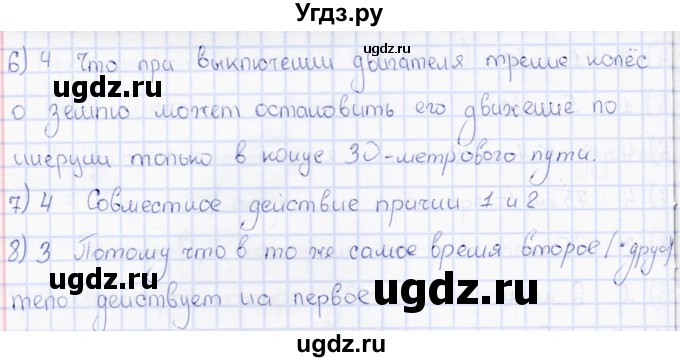 Угдз.ру
ugdz.ru
6) 4 Что при выключении двигателя трение колёс
ugdz.ru
ugdz.ru
о землю может остановить его движение по
инерции только в конце 30-метрового пути.
ugdz.ru
7) 4 Совместное действие причин 1 и 2
ugdz.ru
8) 3 Потому что в то же самое время второе
ugdz.ru
ugdz.ru
тело действует на первое
ugdz.ru